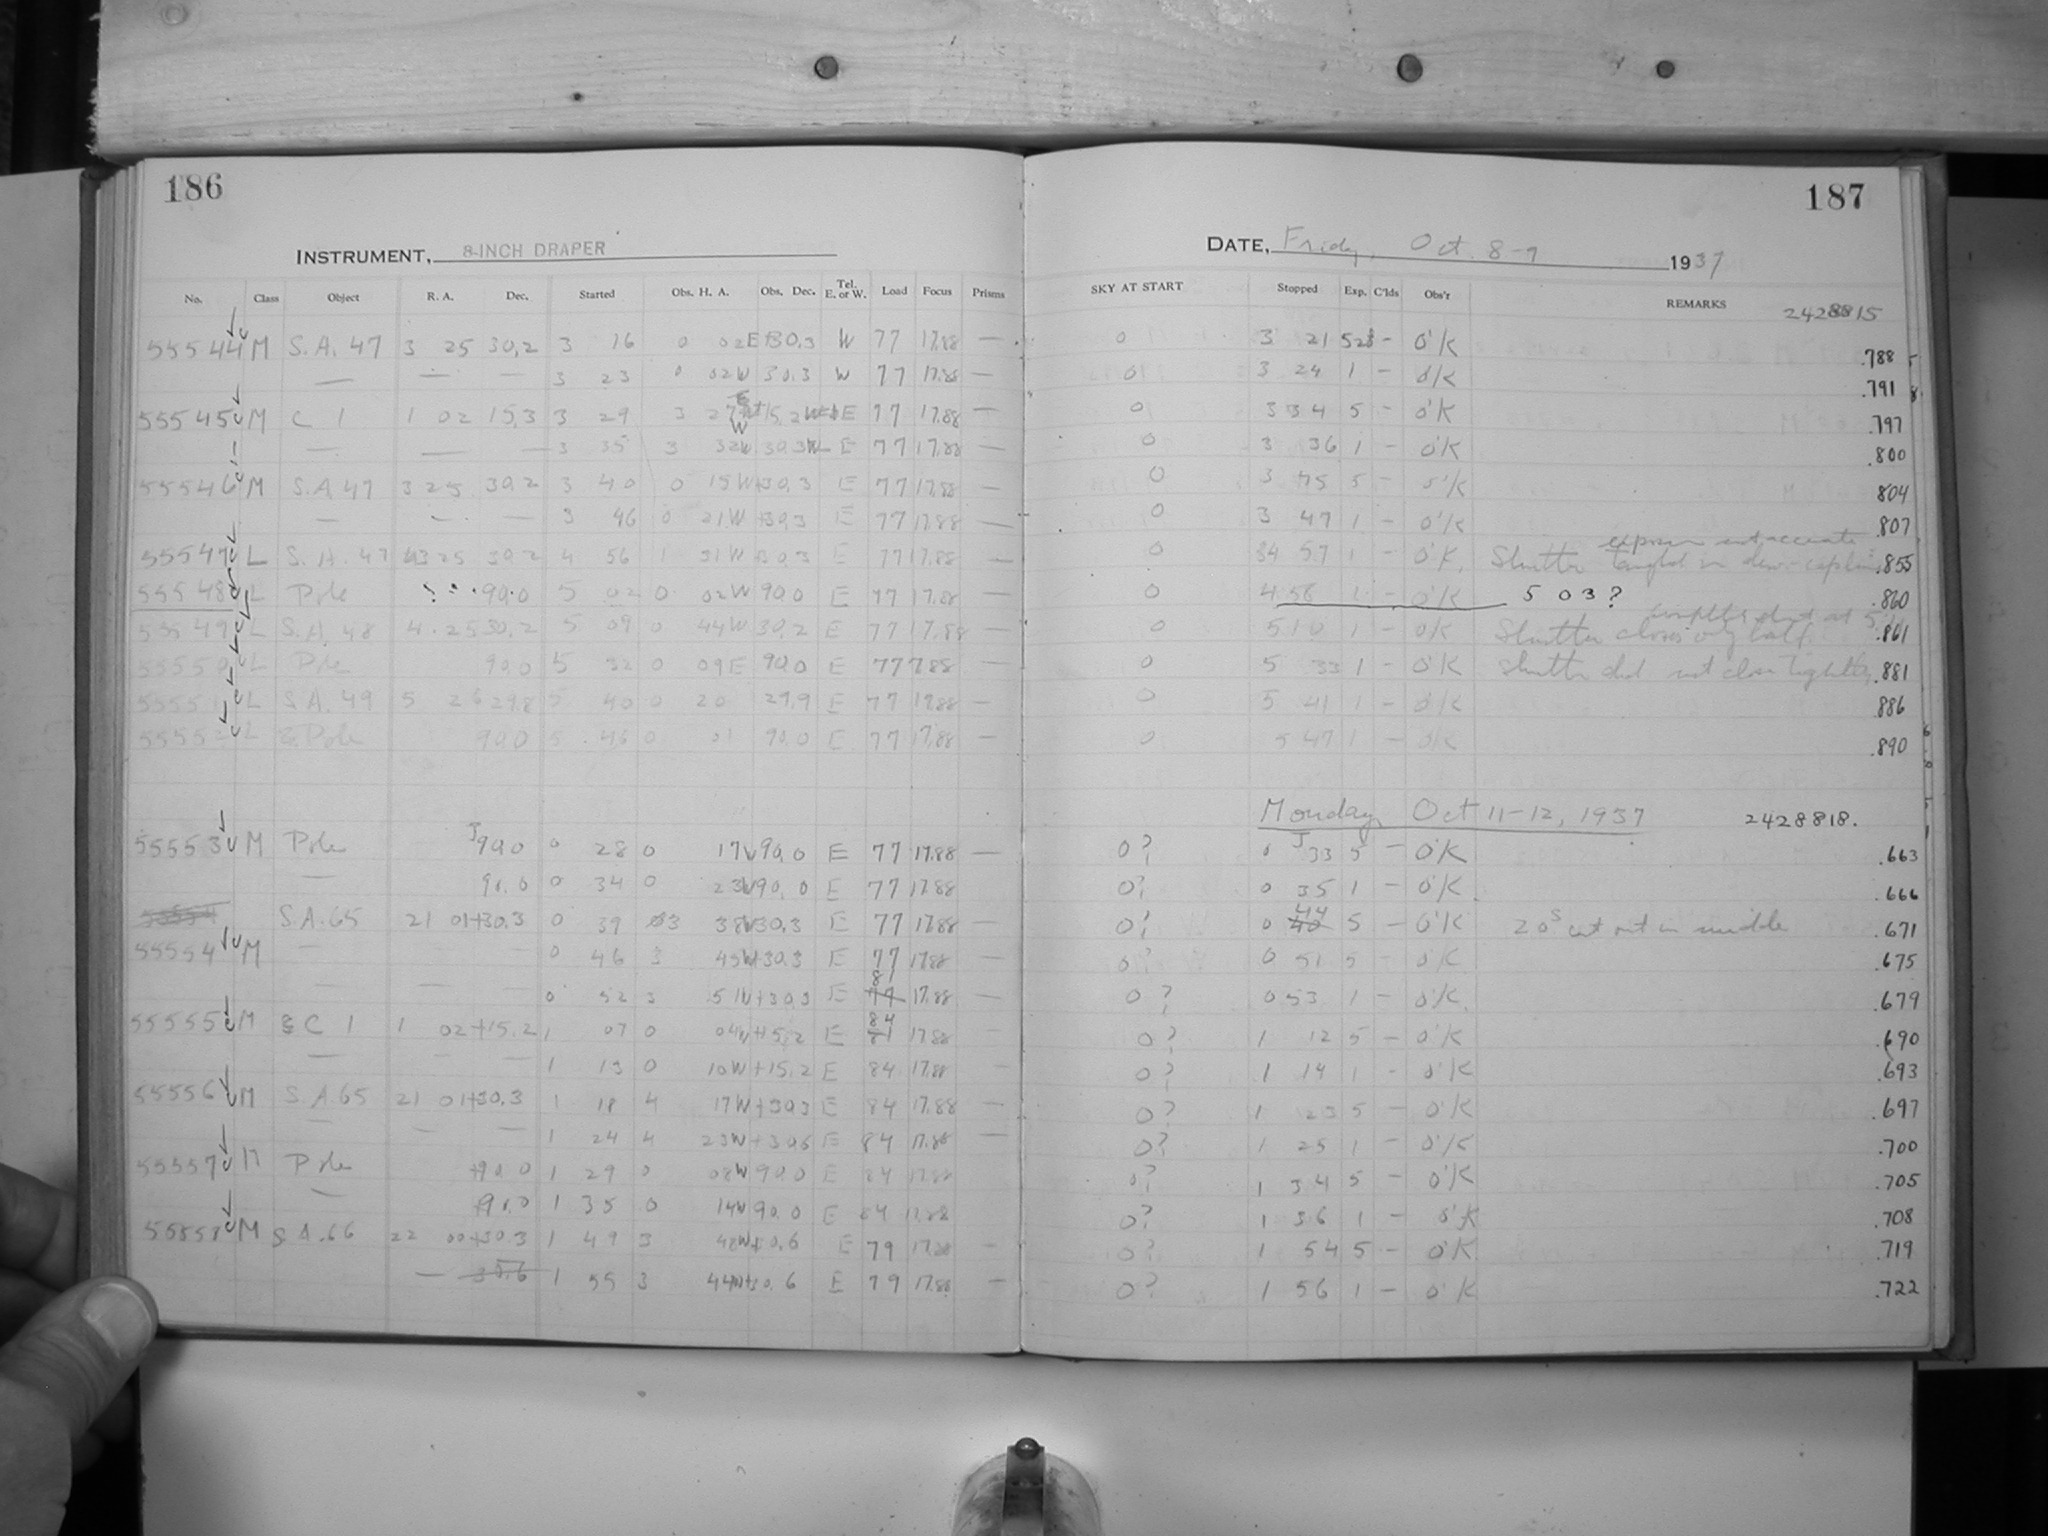 186
INSTRUMENT, 8-INCH DRAPER
No. Class Object R. A. Dec. Started Obs. H. A. Obs. Dec. Tel. E. or W. Load Focus Prisms
55544 M S.A. 47 3 25 30.2 3 16 0 02E +30.3 W 77 17.88 —
— — — 3 23 0 02W 30.3 W 77 17.88 —
55545 M C 1 1 02 15.3 3 29 3 27 E W +15.2 E 77 17.88 —
— — — 3 35 3 32W 30.3 E 77 17.88 —
55546 M S.A. 47 3 25 30.2 3 40 0 15W +30.3 E 77 17.88 —
— — — 3 46 0 21W +30.3 E 77 17.88 —
55547 L S.A. 47 3 25 30.2 4 56 1 31W 30.3 E 77 17.88 —
55548 L Pole 90.0 5 02 0 02W 90.0 E 77 17.88 —
55549 L S.A. 48 4 25 30.2 5 09 0 44W 30.2 E 77 17.88 —
55550 L Pole 90.0 5 32 0 09E 90.0 E 77 17.88 —
55551 L S.A. 49 5 26 29.8 5 40 0 20 29.9 E 77 17.88 —
55552 L Pole 90.0 5 46 0 01 90.0 E 77 17.88 —
55553 M Pole 90.0 0 28 0 17W 90.0 E 77 17.88 —
— 90.0 0 34 0 23W 90.0 E 77 17.88 —
55554 S.A. 65 21 01 +30.3 0 39 3 38W 30.3 E 77 17.88 —
55554 M — 0 46 3 45W +30.3 E 77 17.88
— — — 0 52 3 51W +30.3 E 81 77 17.88 —
55555 M C 1 1 02 +15.2 1 07 0 04W +15.2 E 84 81 17.88
— — — 1 13 0 10W +15.2 E 84 17.88 —
55556 M S.A. 65 21 01 +30.3 1 18 4 17W +30.3 E 84 17.88 —
— — — 1 24 4 23W +30.6 E 84 17.88 —
55557 M Pole +90.0 1 29 0 08W 90.0 E 84 17.88
— +90.0 1 35 0 14W 90.0 E 84 17.88
55558 M S.A. 66 22 00 +30.3 1 49 3 E 79 17.88 —
— 30.6 1 55 3 44W +30.6 E 79 17.88 —
187
DATE, Friday, Oct. 8-9 1937
SKY AT START Stopped Exp. C'lds Obs'r REMARKS
2428815
0 3 21 5 — O'K .788
0 3 24 1 — O'K .791
0 3 34 5 — O'K .797
0 3 36 1 — O'K .800
0 3 45 5 — O'K .804
0 3 47 1 — O'K .807
exposure not accurate
0 4 57 1 — O'K. Shutter tangled in dew-cap line .855
0 4 56 1 — O'K 5 03? .860
0 5 10 1 — O'K Shutter closes only half. .861
0 5 33 1 — O'K Shutter did not close tightly .881
0 5 41 1 — O'K .886
0 5 47 1 — O'K .890
Monday Oct 11-12, 1937 2428818.
0? 0 33 5 — O'K .663
0? 0 35 1 — O'K .666
0? 0 44 40 5 — O'K 20s cut out in middle .671
0? 0 51 5 — O'K .675
0? 0 53 1 — O'K. .679
0? 1 12 5 — O'K .690
0? 1 14 1 — O'K .693
0? 1 23 5 — O'K .697
0? 1 25 1 — O'K .700
0? 1 34 5 — O'K .705
0? 1 36 1 — O'K .708
0? 1 54 5 — O'K .719
0? 1 56 1 — O'K .722